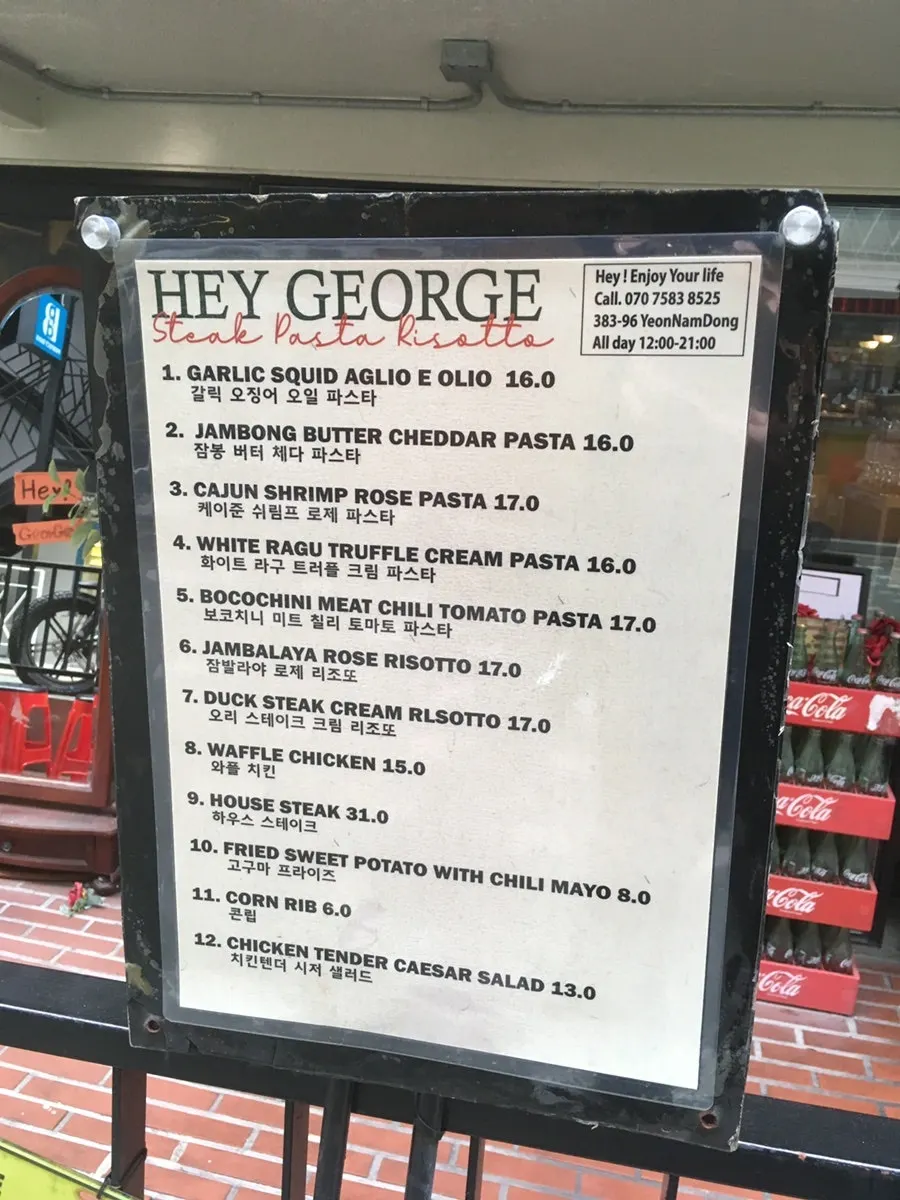 HEY GEORGE
Steak Pasta Risotto
Hey ! Enjoy Your life
Call. 070 7583 8525
383-96 YeonNamDong
All day 12:00-21:00
1. GARLIC SQUID AGLIO E OLIO 16.0
갈릭 오징어 오일 파스타
2. JAMBONG BUTTER CHEDDAR PASTA 16.0
잠봉 버터 체다 파스타
3. CAJUN SHRIMP ROSE PASTA 17.0
케이준 쉬림프 로제 파스타
4. WHITE RAGU TRUFFLE CREAM PASTA 16.0
화이트 라구 트러플 크림 파스타
5. BOCOCHINI MEAT CHILI TOMATO PASTA 17.0
보코치니 미트 칠리 토마토 파스타
6. JAMBALAYA ROSE RISOTTO 17.0
잠발라야 로제 리조또
7. DUCK STEAK CREAM RLSOTTO 17.0
오리 스테이크 크림 리조또
8. WAFFLE CHICKEN 15.0
와플 치킨
9. HOUSE STEAK 31.0
하우스 스테이크
10. FRIED SWEET POTATO WITH CHILI MAYO 8.0
고구마 프라이즈
11. CORN RIB 6.0
콘립
12. CHICKEN TENDER CAESAR SALAD 13.0
치킨텐더 시저 샐러드
Hey!
GeorGe
Coca-Cola
Coca-Cola
Coca-Cola
Coca-Cola